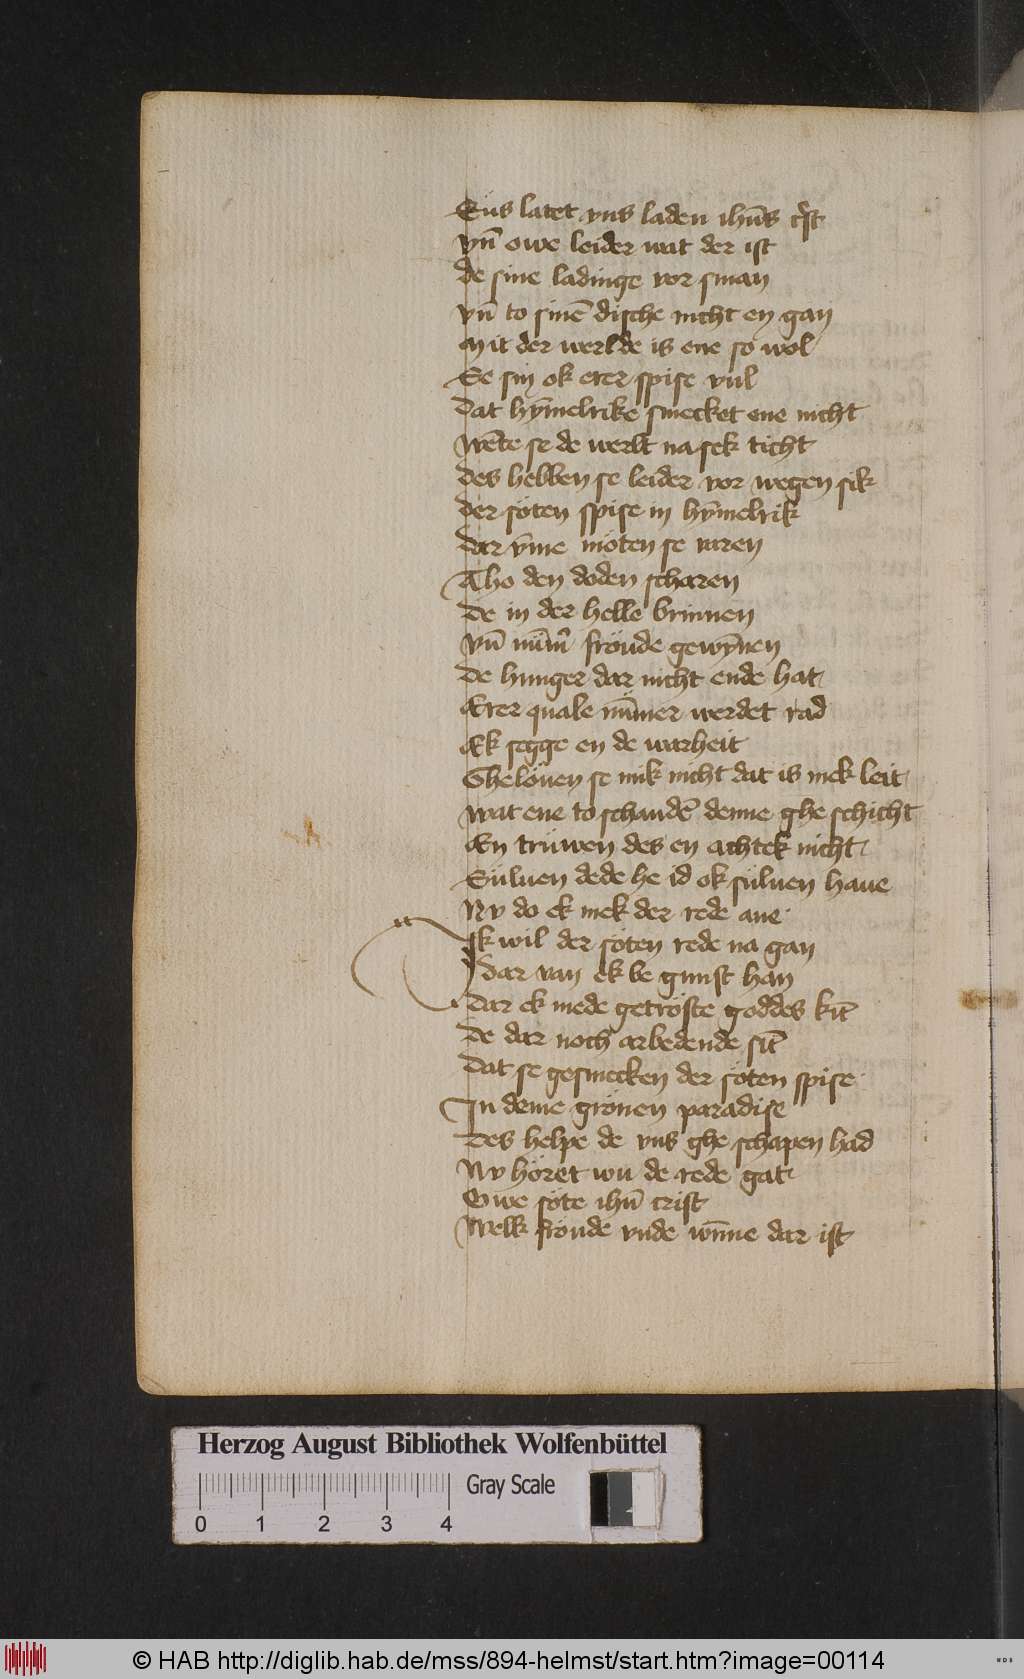 Sus latet vns laden ihūs crist
vn̄ owe leider wat der ist
de sine ladinge vor sman
vn̄ to sinē dische nicht en gan
Mit der werlde is ene so wol
Se sin ok erer spise vul
dat hȳmelrike smecket ene nicht
wēte se de werlt na sek ticht
des hebben se leider vor wegen sik
der söten spise in hȳmelrik
dar v̄me möten se varen
Tho den doden scharen
de in der helle brinnen
vn̄ nūm̄er fröude gewȳnen
de hunger dar nicht ende hat
Erer quale nūmer werdet rad
Ek segge en de warheit
Ghelöuen se mik nicht dat is mek leit
wat ene to schandē denne ghe schicht
En trüwen des en achtek nicht
Süluen dede he id ok süluen haue
Nv do ek mek der rede aue
Ik wil der söten rede na gan
dar van ek be gunst han
dar ek mede getröste goddes kīt
de dar noch arbedende sīt
dat se gesmecken der söten spise
In deme grönen paradise
des helpe de vns ghe schapen had
Nv höret wu de rede gat
Owe söte ihū crist
Welk fröude vnde wūne dar ist
Herzog August Bibliothek Wolfenbüttel
Gray Scale
0 1 2 3 4
© HAB http://diglib.hab.de/mss/894-helmst/start.htm?image=00114